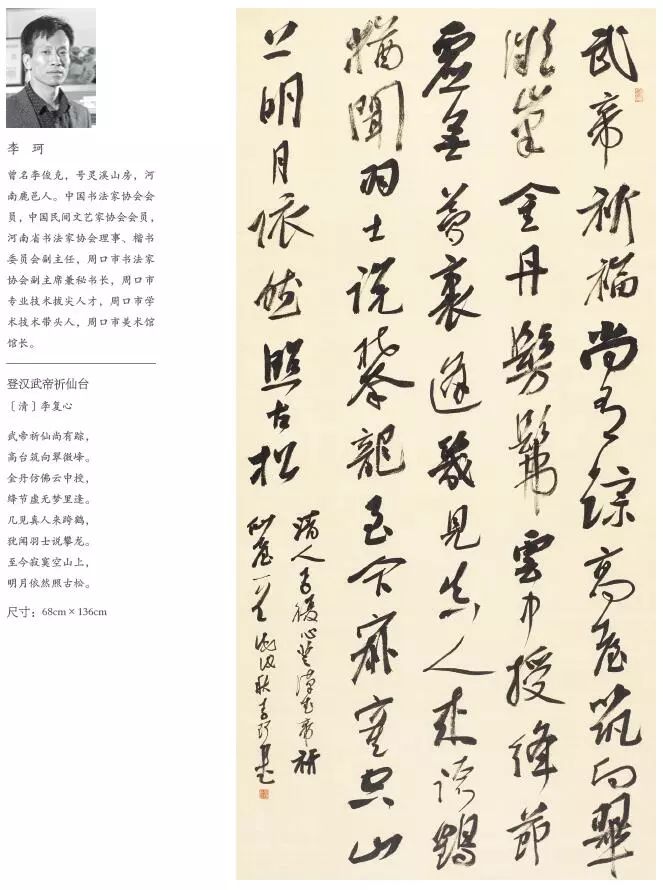 李 珂
曾名李俊克，号灵溪山房，河
南鹿邑人。中国书法家协会会
员，中国民间文艺家协会会员，
河南省书法家协会理事、楷书
委员会副主任，周口市书法家
协会副主席兼秘书长，周口市
专业技术拔尖人才，周口市学
术技术带头人，周口市美术馆
馆长。
登汉武帝祈仙台
［清］李复心
武帝祈仙尚有踪，
高台筑向翠微峰。
金丹仿佛云中授，
绛节虚无梦里逢。
几见真人来跨鹤，
犹闻羽士说攀龙。
至今寂寞空山上，
明月依然照古松。
尺寸：68cm×136cm
武帝祈福尚有踪高臺筑向翠
微峯金丹髣髴雲中授絳節
虚無夢裏逢幾見真人来跨鶴
猶聞羽士说攀龍至今寂寞空山
上明月依然照古松
清人李復心登漢武帝祈
仙臺一首 秋李珂書